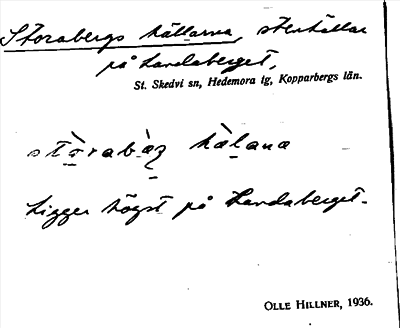 Storabergs hällarna, stenhällar
på Landaberget,
St. Skedvi sn, Hedemora tg, Kopparbergs län.
hà̀lana
Ligger högst på Landaberget.
OLLE HILLNER, 1936.